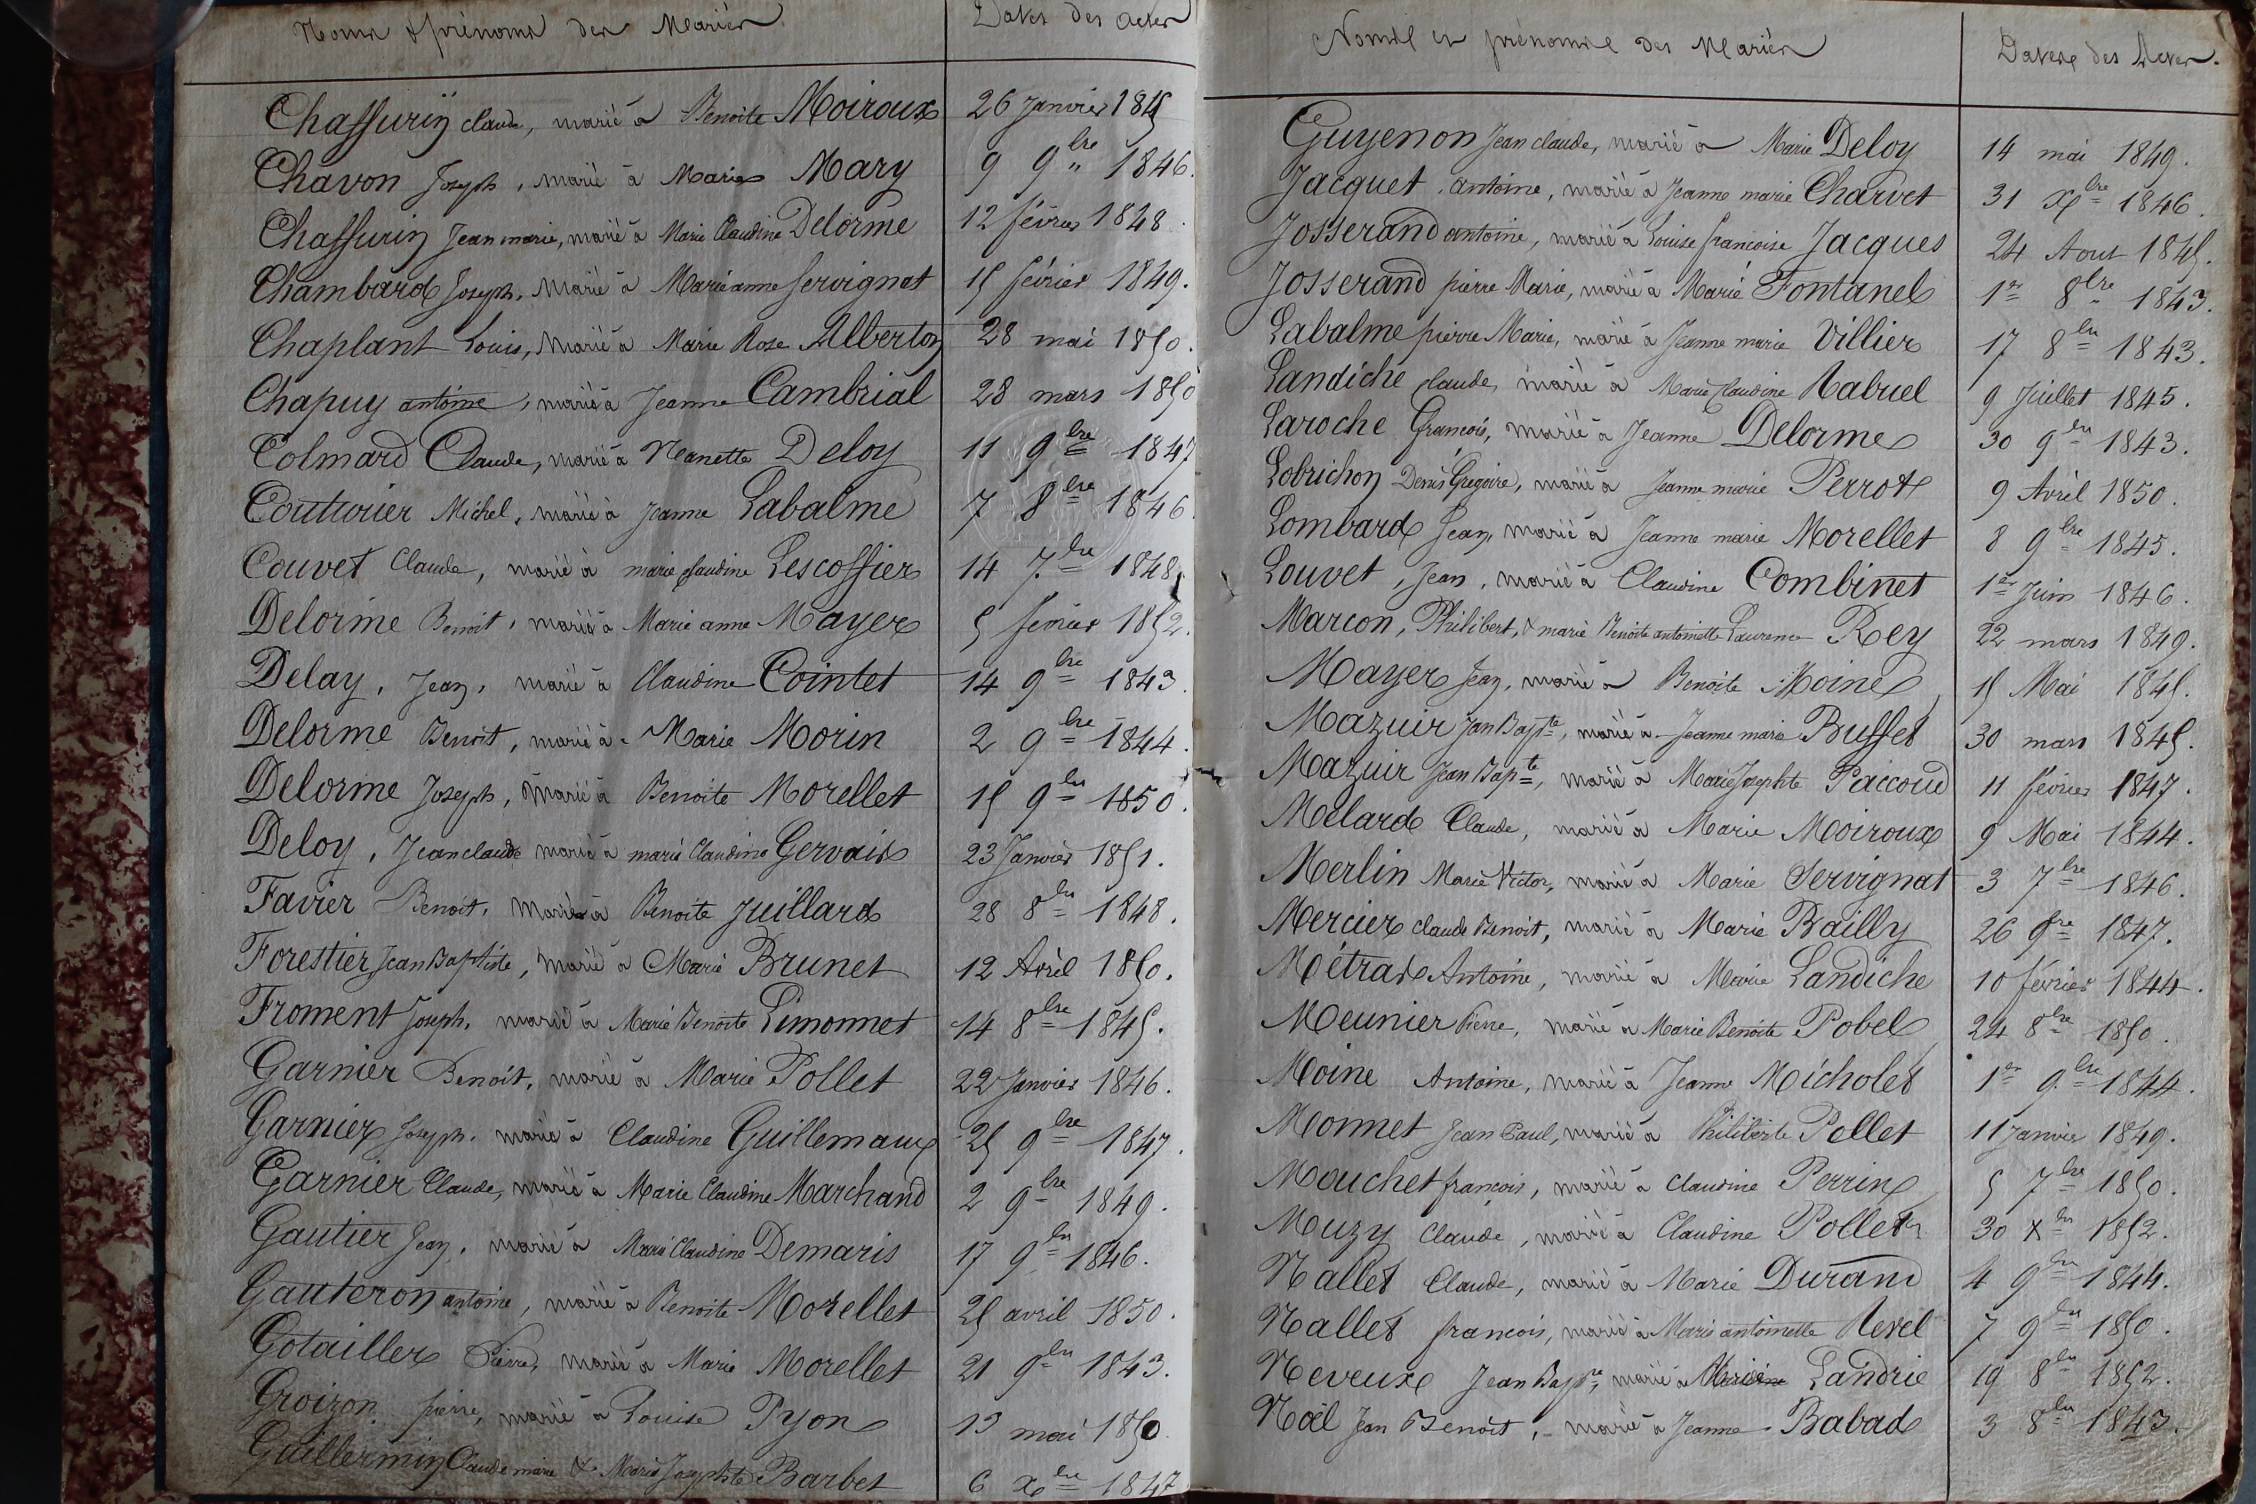 Noms & prénoms des Mariés
Dates des actes
Chaffurin Claude, marié à Benoite Moiroux 26 Janvier 1845
Chavon Joseph, marié à Marie Mary 9 9bre 1846.
Chaffurin Jean marie, marié à Marie Claudine Delorme 12 février 1848.
Chambard Joseph, Marié à Marie anne Servignat 15 février 1849.
Chaplant Louis, Marié à Marie Rose Alberton 28 mai 1850.
Chapuy antoine, marié à Jeanne Cambrial 28 mars 1850
Colmard Claude, marié à Nanette Deloy 11 9bre 1847
Couturier Michel, marié à Jeanne Labalme 7 8bre 1846
Couvet Claude, marié à marie Claudine Lescoffier 14 7bre 1848
Delorme Benoit, marié à Marie anne Mayer 5 février 1852.
Delay, Jean, marié à Claudine Cointet 14 9bre 1843.
Delorme Benoit, marié à Marie Morin 2 9bre 1844.
Delorme Joseph, marié à Benoite Morellet 15 9bre 1850.
Deloy, Jean claude marié à marie Claudine Gervais 23 Janvier 1851.
Favier Benoit, Marié à Benoite Juillard 28 8bre 1848.
Forestier Jean Baptiste, Marié à Marie Brunet 12 Avril 1850.
Froment Joseph, marié à Marie Benoite Limonnet 14 8bre 1845.
Garnier Benoit, marié à Marie Pollet 22 Janvier 1846.
Garnier Joseph, marié à Claudine Guillemaux 25 9bre 1847.
Garnier Claude, marié à Marie Claudine Marchand 2 9bre 1849.
Gautier Jean, marié à Marie Claudine Demaris 17 9bre 1846.
Gauteron antoine, marié à Benoite Morellet 25 avril 1850.
Gotailler Pierre, marié à Marie Morellet 21 9bre 1843.
Groizon pierre, marié à Louise Pyon 13 mai 1850.
Guillermin Claude marie & Marie Josephte Barbet 6 Xbre 1847
Noms et prénoms des Mariés
Dates des Actes.
Guyenon Jean claude, marié à Marie Deloy 14 mai 1849.
Jacquet antoine, marié à Jeanne marie Charvet 31 Xbre 1846.
Josserand antoine, marié à Louise françoise Jacques 24 Aout 1845.
Josserand pierre Marie, marié à Marie Fontanel 1er 8bre 1843.
Labalme pierre Marie, marié à Jeanne marie Villier 17 8bre 1843.
Landiche claude, marié à Marie Claudine Rabuel 9 Juillet 1845.
Laroche François, marié à Jeanne Delorme 30 9bre 1843.
Lobrichon Denis Grégoire, marié à Jeanne marie Perrot 9 Avril 1850.
Lombard Jean, marié à Jeanne marie Morellet 8 9bre 1845.
Louvet, Jean, marié à Claudine Combinet 1er Juin 1846.
Marcon, Philibert, & marie Benoite antoinette Laurence Rey 22 mars 1849.
Mayer Jean, marié à Benoite Moine 15 Mai 1845.
Mazuir Jean Bapte, marié à Jeanne marie Buffet 30 mars 1845.
Mazuir Jean Bapte, marié à Marie Josephte Paccoud 11 février 1847.
Mélard Claude, marié à Marie Moiroux 9 Mai 1844.
Merlin Marie Victor, marié à Marie Servignat 3 7bre 1846.
Mercier claude Benoit, marié à Marie Bailly 26 9bre 1847.
Métras Antoine, marié à Marie Landiche 10 février 1844.
Meunier Pierre, marié à Marie Benoite Pobel 24 8bre 1850.
Moine Antoine, marié à Jeanne Micholet 1er 9bre 1844.
Monnet Jean Paul, marié à Philiberte Pollet 11 Janvier 1849.
Mouchet françois, marié à Claudine Perrin 5 7bre 1850.
Muzy Claude, marié à Claudine Pollet 30 Xbre 1852.
Nallet Claude, marié à Marie Durand 4 9bre 1844.
Nallet françois, marié à Marie antoinette Revel 7 9bre 1850.
Neveux Jean Bapte, marié à Landrie 19 8bre 1852.
Noël Jean Benoit, marié à Jeanne Babad 3 8bre 1843.